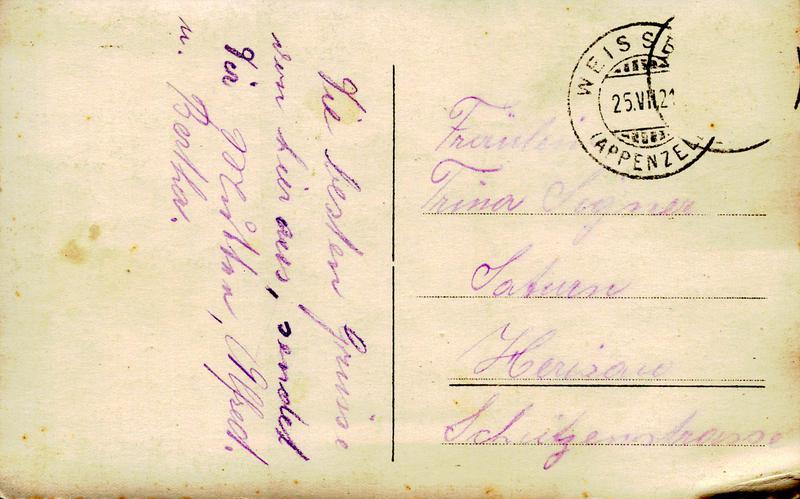 Die besten Grüsse
von hier aus, sendet
Dir Mutter, Alfred.
u. Bertha.
WEISSB
25.VII.21
(APPENZE
Fräulein
Trina Signer
Saturn
Herisau
Schützenstrasse